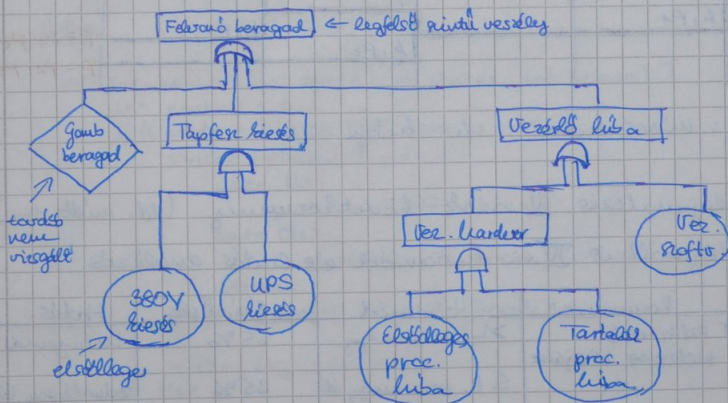 Felvonó beragad ← legfelső szintű veszély
Gomb
beragad
Tápfesz kiesés
Vezérlő hiba
tovább
nem
vizsgált
Vez. hardver
Vez.
szoftv.
380V
kiesés
UPS
kiesés
elsődleges
Elsődleges
proc.
hiba
Tartalék
proc.
hiba